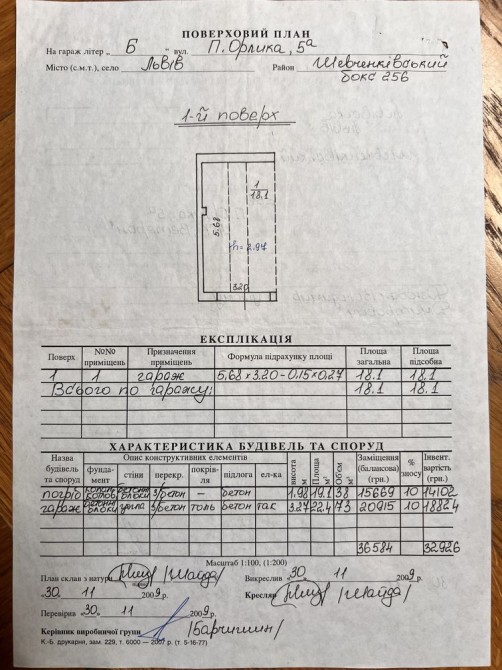 ПОВЕРХОВИЙ ПЛАН
На гараж літер „ Б “ вул. П. Орлика, 5а
Місто (с.м.т.), село Львів Район Шевченківський
бокс 256
1-й поверх
1
18.1
5.68
h=2.97
3.20
ЕКСПЛІКАЦІЯ
Поверх №№ приміщень Призначення приміщень Формула підрахунку площі Площа загальна Площа підсобна
1 1 гараж 5.68×3.20-0.15×0.27 18.1 18.1
Всього по гаражу: 18.1 18.1
ХАРАКТЕРИСТИКА БУДІВЕЛЬ ТА СПОРУД
Назва будівель та споруд Опис конструктивних елементів Заміщення (балансова) (грн.) % зносу Інвент. вартість (грн.)
фундамент стіни перекр. покрівля підлога ел-ка висота м Площа м² Об'єм м³
погріб бетонні блоки з/бетон – бетон 1.98 19.1 38 15669 10 14102
гараж бетонні блоки цегла з/бетон толь бетон так 3.27 22.4 73 20915 10 18824
36584 32926
Масштаб 1:100, (1:200)
План склав з натури /Шайда/ Викреслив „30 11 2009р.
„30. 11 2009р. Кресляр /Шайда/
Перевірив „30. 11 2009р.
Керівник виробничої групи
К.-Б. друкарня, зам. 229, т. 6000 — 2007 р. (т. 5-16-77)